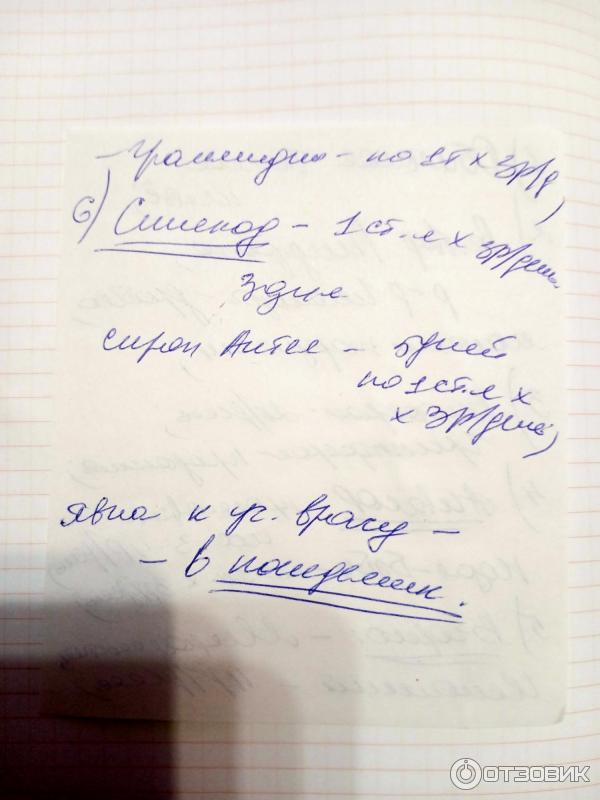 - Граммидин - по 1т х 3р/д)
6) Синекод - 1 ст.л х 3р/день
3 дня
сироп Алтея - 5 дней
по 1 ст.л х
х 3р/день)
явка к уч. врачу -
- в понедельник.
ОТЗОВИК